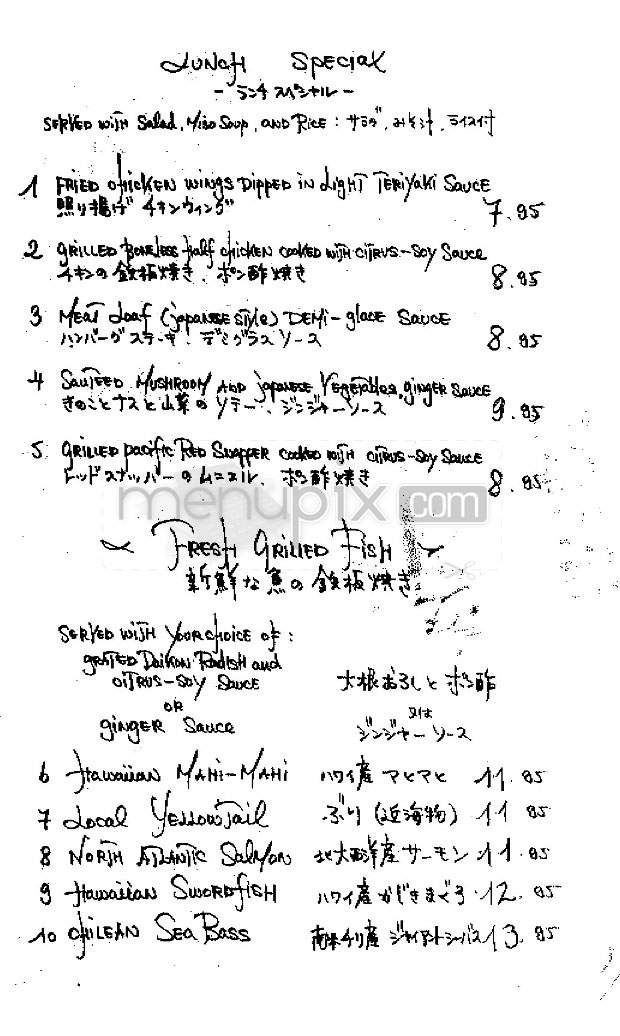 Lunch Special
- ランチスペシャル -
Served with Salad, Miso Soup, and Rice : サラダ, みそ汁, ライス付
1 Fried chicken wings Dipped in Light Teriyaki Sauce
照り揚げ チキンウィング 7.95
2 Grilled Boneless half chicken cooked with citrus-Soy Sauce
チキンの鉄板焼き、ポン酢焼き 8.95
3 Meat Loaf (Japanese style) Demi-glace Sauce
ハンバーグステーキ、デミグラスソース 8.95
4 Sauteed Mushroom and Japanese Vegetables, ginger Sauce
きのことナスと山菜のソテー、ジンジャーソース 9.95
5. Grilled pacific Red Snapper cooked with citrus-Soy Sauce
レッドスナッパーのムニエル、ポン酢焼き 8.95
menupix.com
Fresh Grilled Fish
新鮮な魚の鉄板焼き
Served with Your choice of :
grated Daikon Radish and
citrus-soy Sauce 大根おろしとポン酢
or 又は
ginger Sauce ジンジャーソース
6 Hawaiian Mahi-Mahi ハワイ産マヒマヒ 11.95
7 Local Yellowtail ぶり (近海物) 11 95
8 North Atlantic Salmon 北大西洋産サーモン 11.95
9 Hawaiian Swordfish ハワイ産かじきまぐろ 12.95
10 Chilean Sea Bass 南米チリ産ジャイアントシーバス 13.95